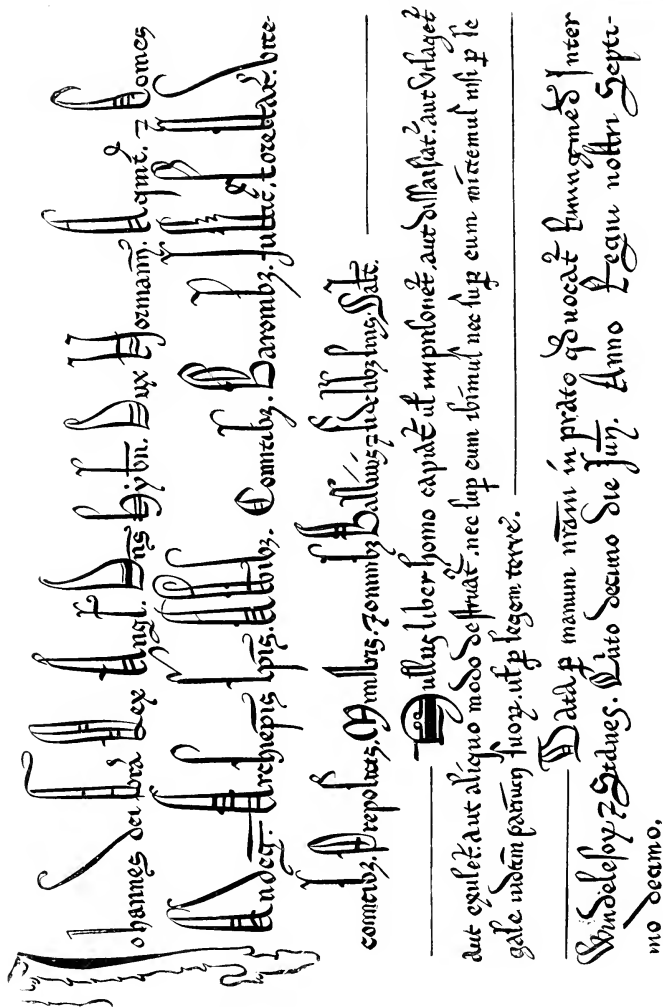 Johannes dei gr̄a Rex Angl. Dn̄s Hybn. Dux Normann̄. Aqnit̄. ⁊ Comes
Andeḡ. Archiep̄is Ep̄is. Abbibꝫ. Comitibꝫ. Baronibꝫ. Justic̄. Forestar̄. Vice-
comitibꝫ. Prepositis. Ministris. ⁊ omnibꝫ Ballivis ⁊ fidelibꝫ suis. Salt̄.
Nullus liber homo capiat̄ ul inprisonet̄, aut dissaisiat̄. aut utlaget̄
aut exulet̄. aut aliquo modo destruat̄. nec suꝑ eum ibimus nec suꝑ eum mittemus nisi ꝑ le
gale iudiciū parium suoꝝ. ul ꝑ legem terre.
Data ꝑ manum nr̄am in prato qd vocat̄ Runingmed Inter
Windelesor ⁊ Stanes. Quīto decimo die Jun̄. Anno Regni nostri Septi-
mo decimo.